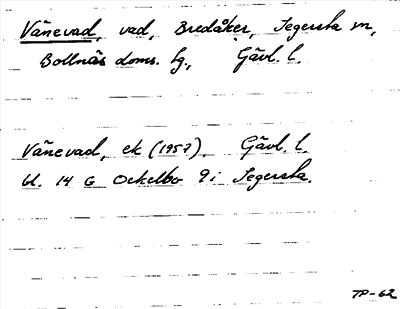 Vänevad, vad, Bredåker, Segersta sn,
Bollnäs doms. hg., Gävl. l.
Vänevad, ek (1957). Gävl. l.
bl. 14 G Ockelbo 9 i Segersta.
TP-62